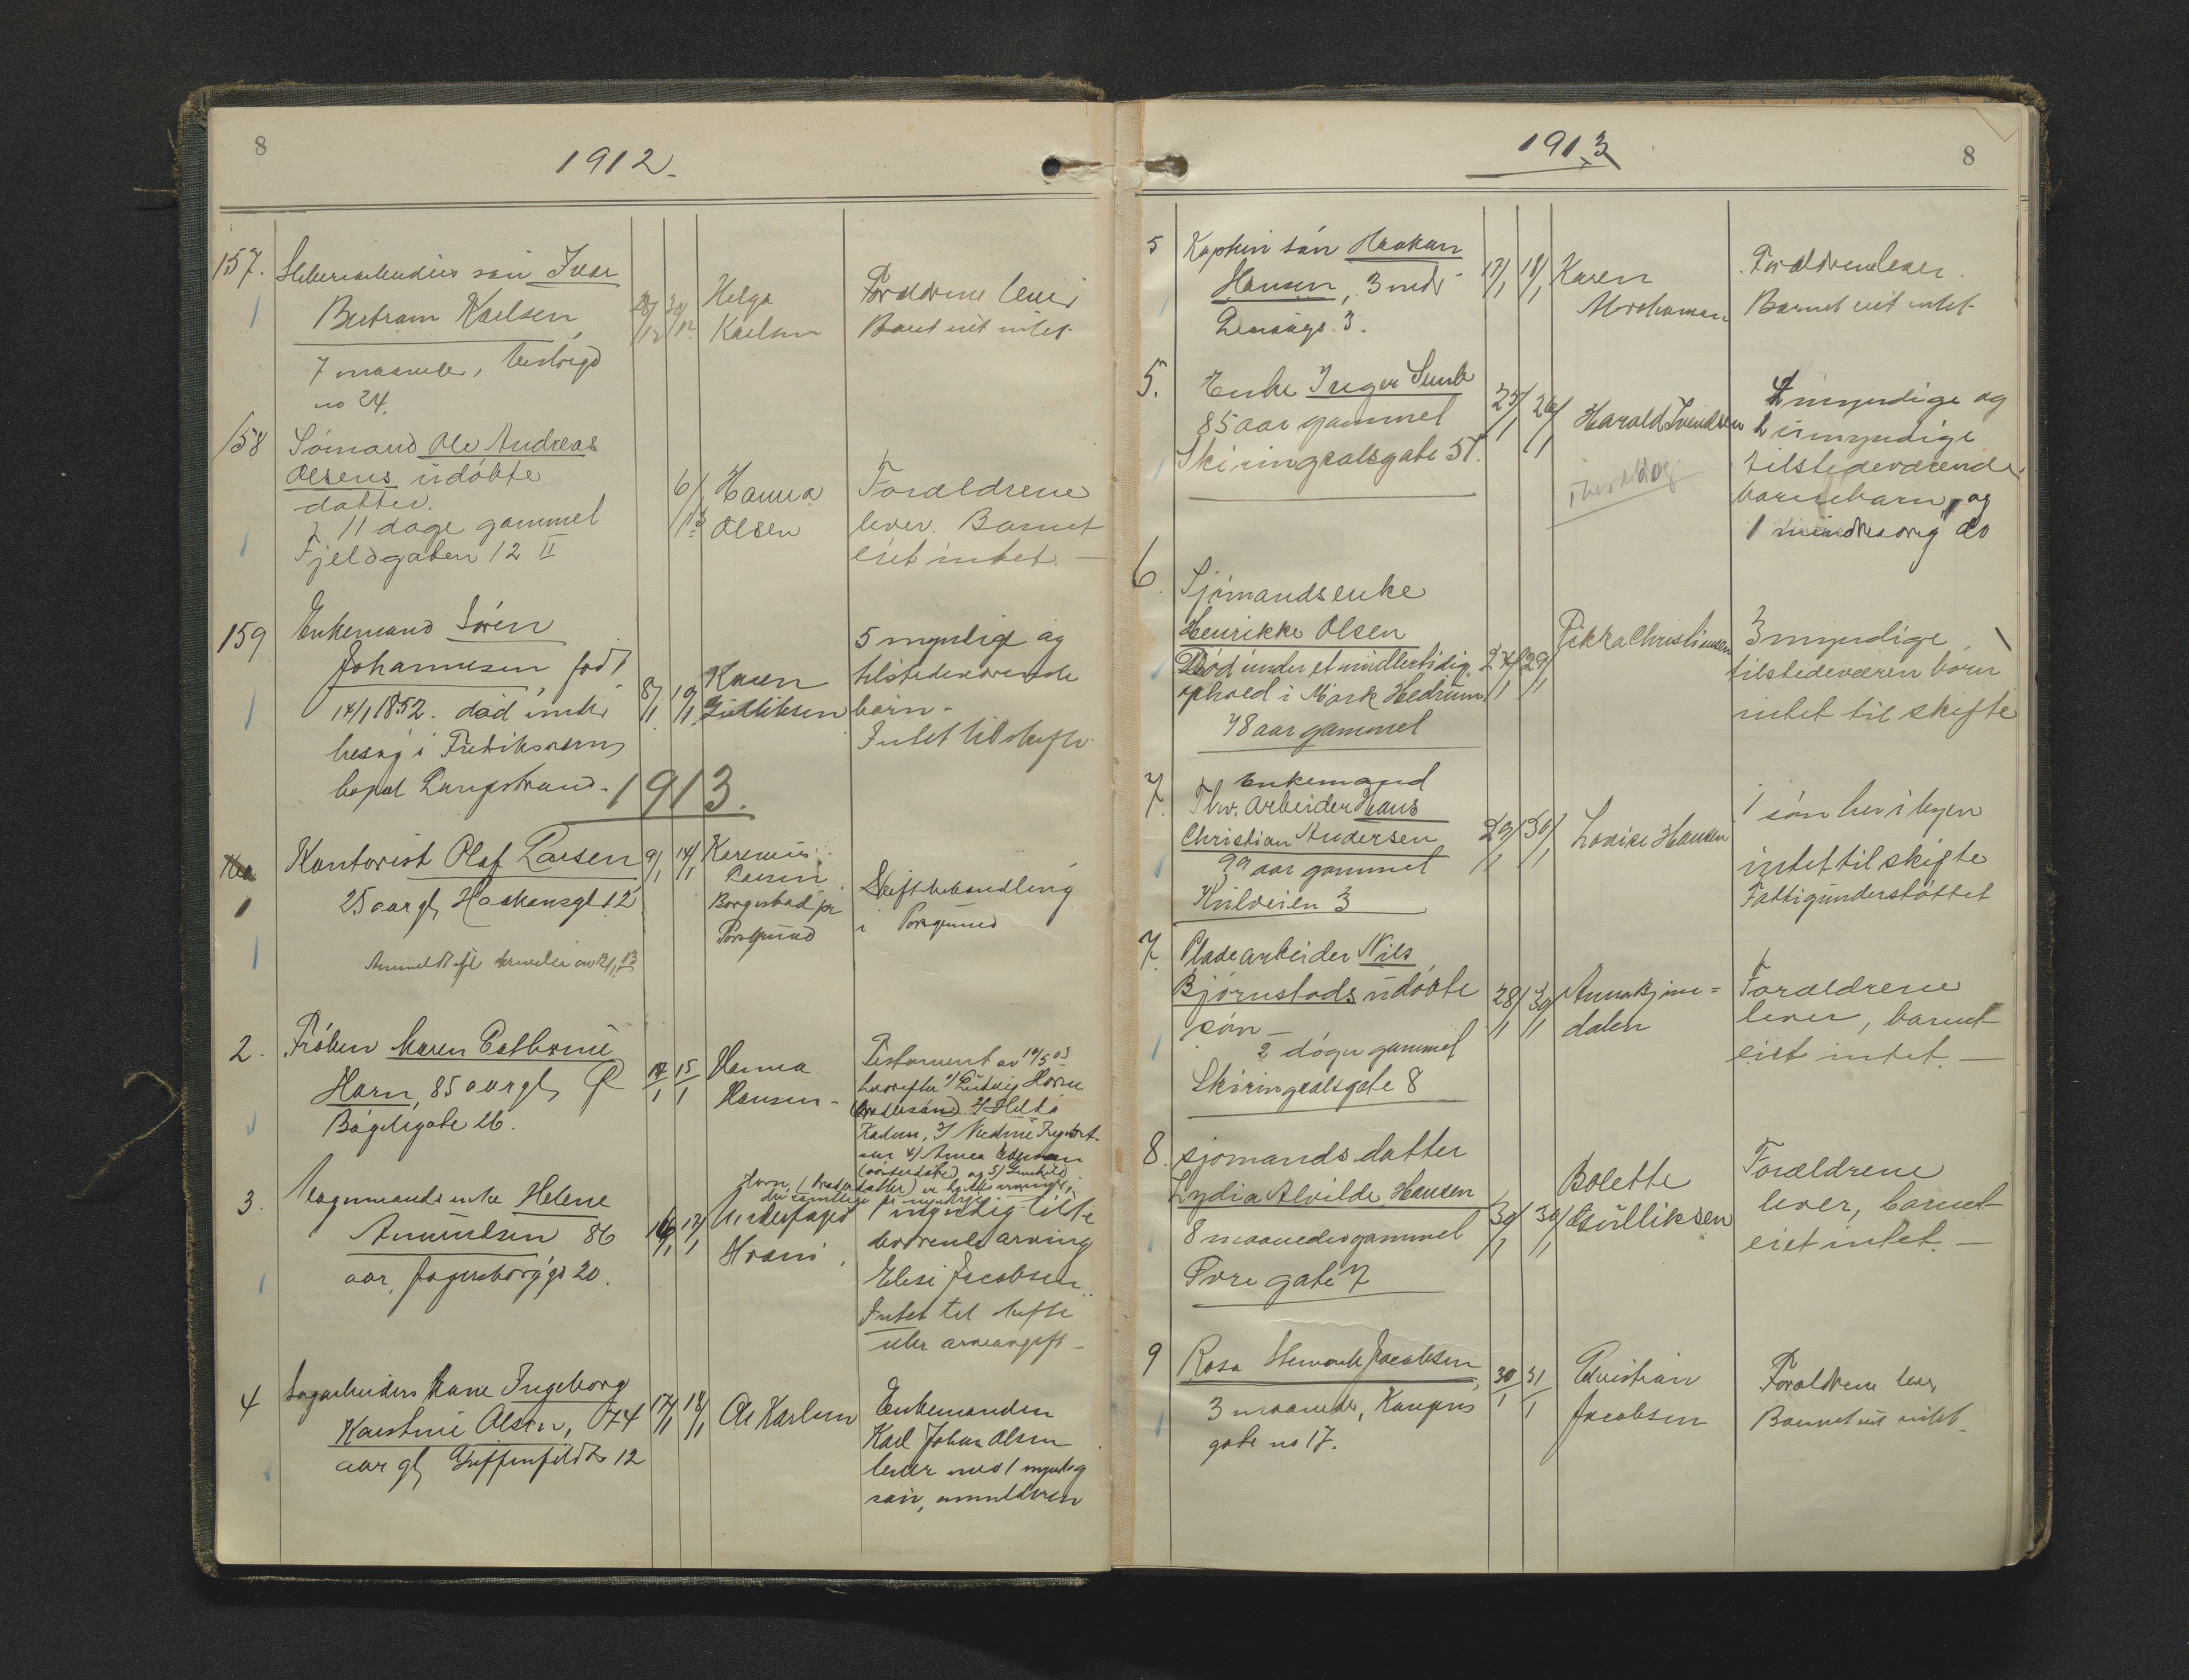 8
1912.
157.
søn Ivar
Bertram Karlsen
7 maaneder,
no 24.
28/12
30/12
Helga
Karlsen
Forældrene lever
Barnet eiet intet.
158
Sømand Ole Andreas
Olsens udøbte
datter.
11 dage gammel
Fjeldgaten 12 II
6/1 13
Hanna
Olsen
Forældrene
lever. Barnet
eiet intet. —
159
Enkemand Søren
Johannesen født
14/1 1852. død under
besøg i Fredriksværn
bopæl Langestrand.
8/1
10/1
Karen
Gulliksen
5 myndige og
tilstedeværende
børn -
Intet til skifte
1913.
1
Kontorist Olaf Larsen
25 aar gl, Haakensgt 12
9/1
14/1
Larsen
Borgestad pr
Porsgrund
Skiftebehandling
i Porsgrund
2.
Frøken Maren Cathrine
Horn, 85 aar gl,
Bøgeligate 26.
14/1
15/1
Hanna
Hansen -
Testament av 10/5 03
hvorefter 1) Ludvig Horn
(brodersøn) 2)
3)
4) Anna
(søsterdatter) og 5)
Horn, (broderdatter) er
de samtlige er myndige
3.
enke Helene
Amundsen 86
aar, Jegersborggd 20.
16/1
17/1
Underfoged
1 myndig tilste
deværende arving
Elise Jacobsen.
Intet til skifte
eller arveavgift -
4
Sagarbeiders kone Ingeborg
Karstine Olsen, 74
aar gl, Griffenfeldts 12
17/1
18/1
Ole Karlsen
Enkemanden
Karl Johan Olsen
lever med 1 myndig
søn,
1913
8
5
Kaptein søn Haakon
Hansen, 3 mdr
3.
17/1
18/1
Karen
Abrahamsen
Forældrene lever.
Barnet eiet intet.
5.
Enke Inger
85 aar gammel
Skiringsalsgate 51.
25/1
26/1
Harald Svendsen
4 myndige og
2 umyndige
tilstedeværende
barnebarn, og
1 mindreaarig do
6
Sjømandsenke
Henrikke Olsen
Død under et midlertidig
ophold i Mørk Hedrum
78 aar gammel
27/1
29/1
Christiansen
3 myndige
tilstedeværen børn
intet til skifte
7.
Enkemand
Fhv. Arbeider Hans
Christian Andersen
aar gammel
3
29/1
30/1
Lovise Hansen
1 søn her i byen
intet til skifte
Fattigunderstøttet
7.
Pladearbeider Nils
Bjørnstads udøbte
søn —
2 døgn gammel
Skiringsalsgate 8
28/1
30/1
Anna
dalen
Forældrene
lever, barnet
eiet intet. —
8.
sjømands datter
Lydia Alvilde Hansen
8 maaneder gammel
Øvre gate 7
30/1
30/1
Bolette
Gulliksen
Forældrene
lever, barnet
eiet intet. —
9
Rosa Jacobsen
3 maaneder, Kongens
gate no 17.
30/1
31/1
Christian
Jacobsen
Forældrene lever
Barnet eiet intet.